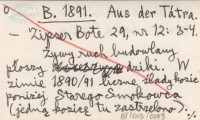 B. 1891. Aus der Tátra.
— Zipser Bote 29, nr 12: 3-4.
Żywy ruch budowlany
płoszy dziki. W
zimie 1890/91 liczne ślady kozic
poniżej Starego Smokowca
(jedną kozicę tu zastrzelono).